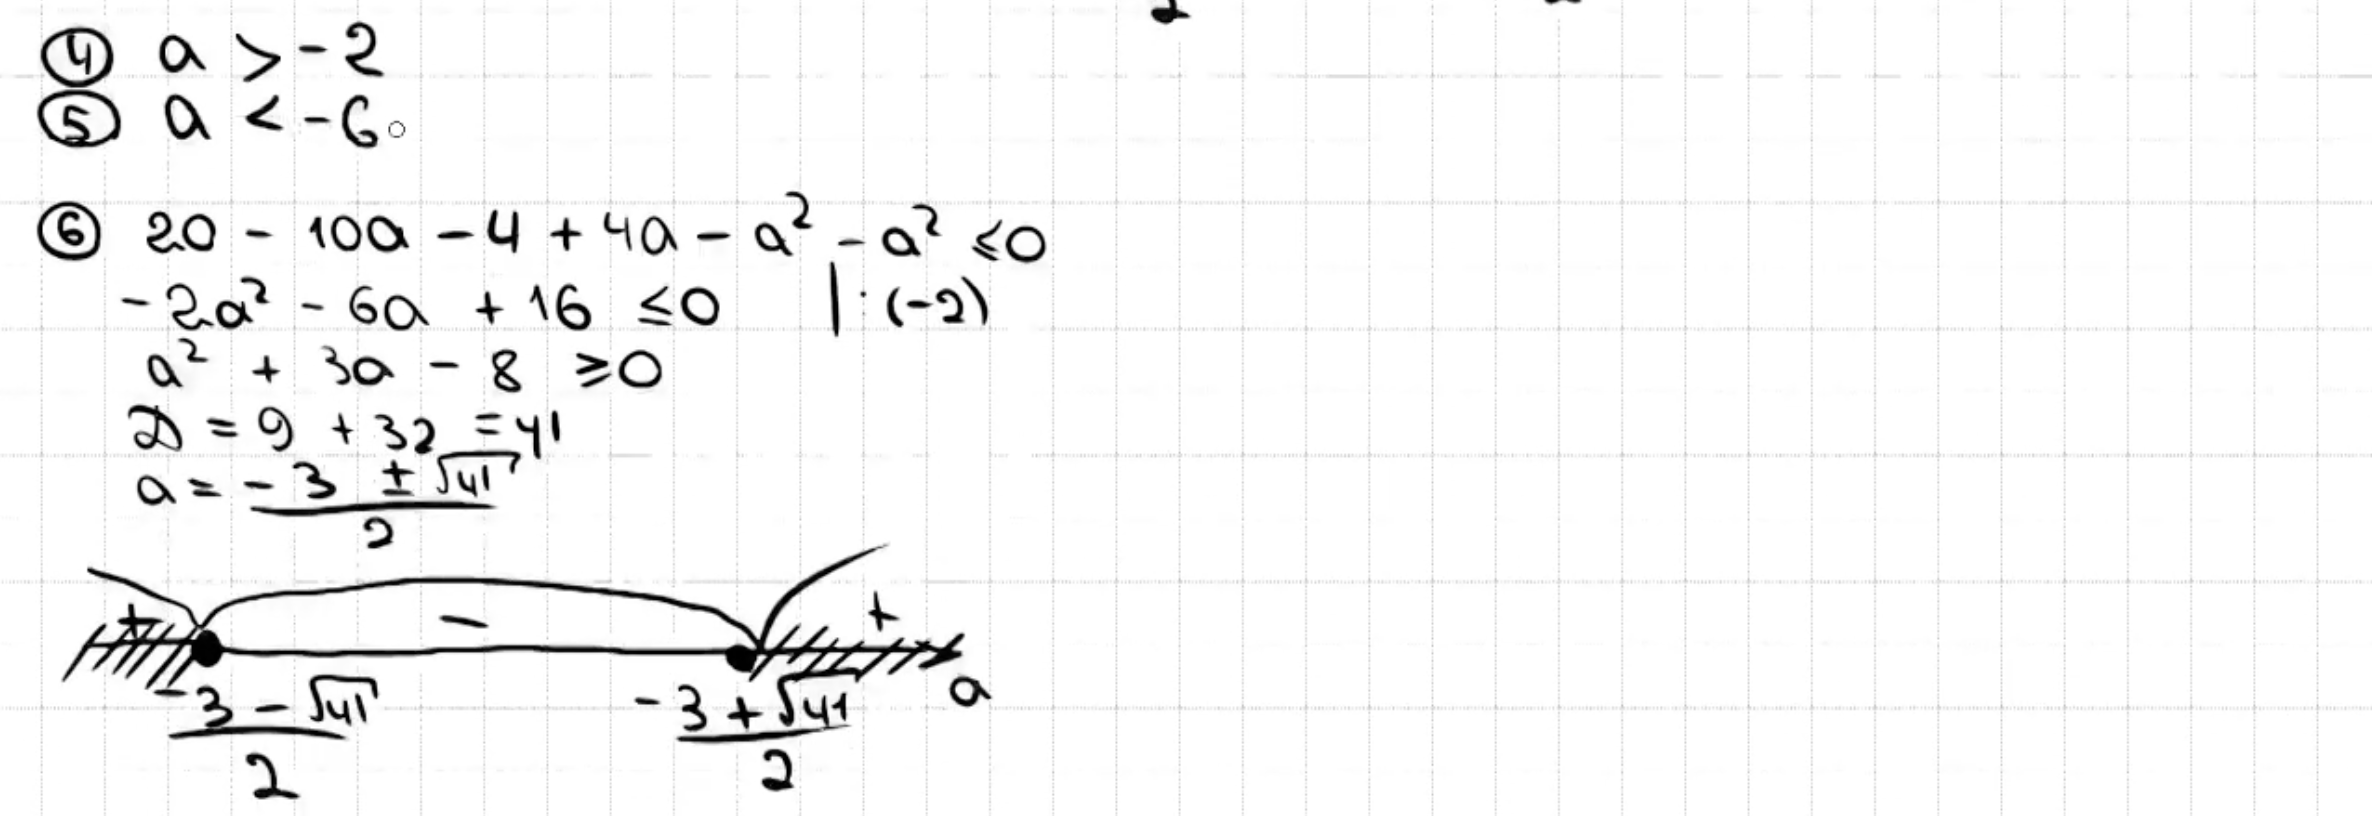 ④ a > -2
⑤ a < -6
⑥ 20 - 10a - 4 + 4a - a² - a² ≤ 0
-2a² - 6a + 16 ≤ 0 | : (-2)
a² + 3a - 8 ≥ 0
D = 9 + 32 = 41
a = (-3 ± √41) / 2
+ - +
(-3 - √41) / 2 (-3 + √41) / 2 a